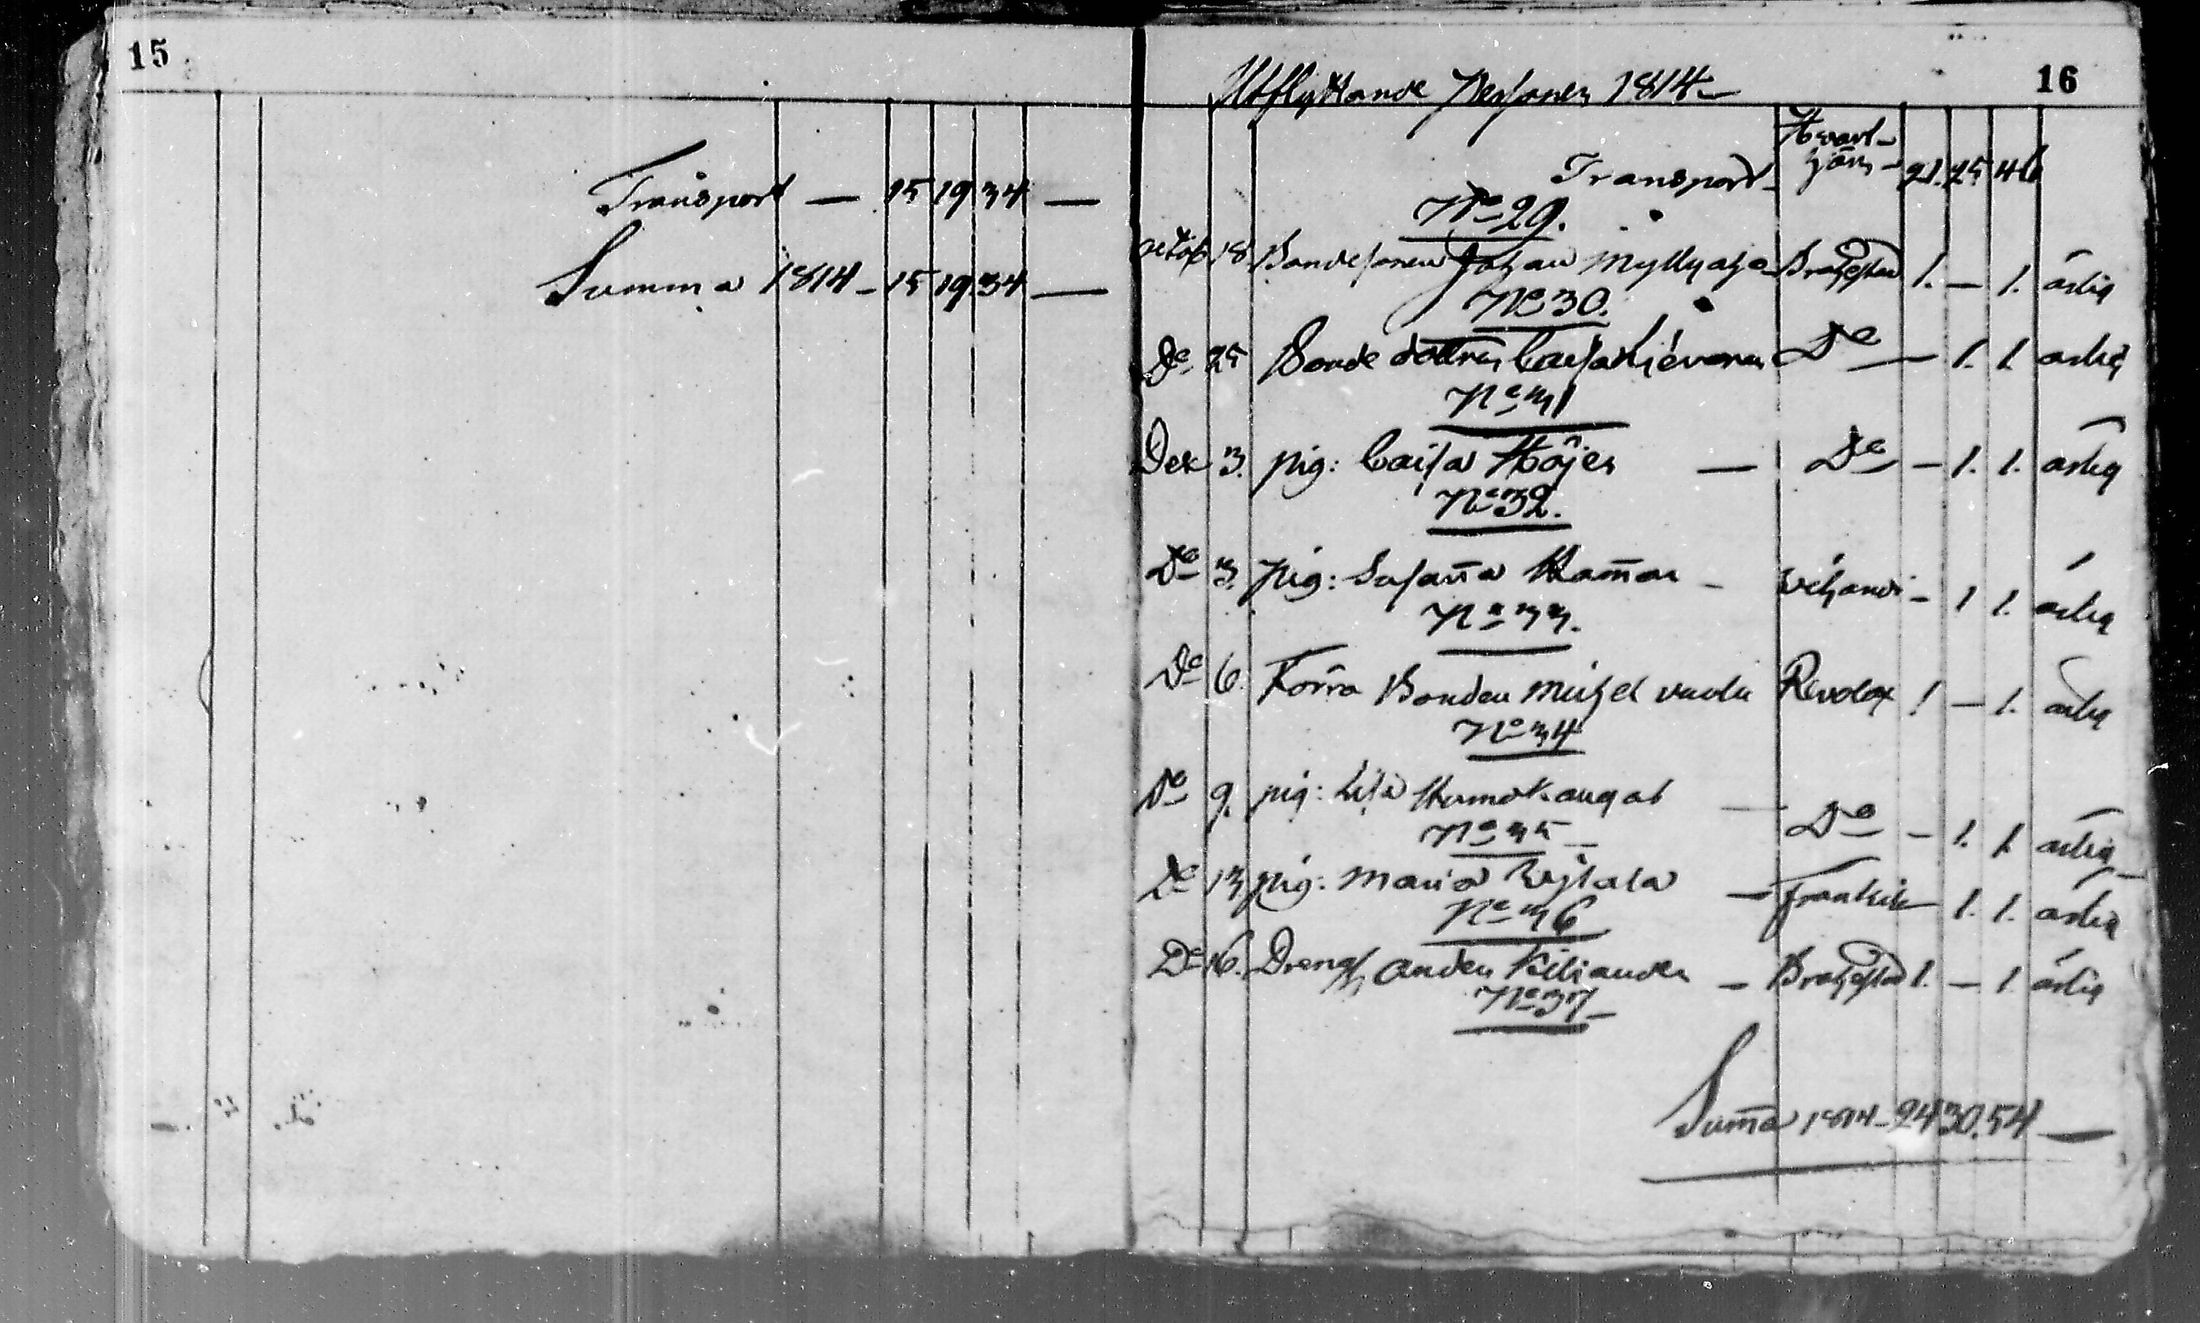 15
Transport — 15 19 34 —
Summa 1814 - 15 19 34 —
16
Utflyttande Personer 1814 -
Hvart-
Transport - 21. 25 46
No 29.
octob 18. Bondesonen Johan Myllyoja - Brahestad 1. — 1. ärlig
No 30.
Do 25 Bonde dottren Caisa Do — 1. 1. ärlig
No 31
Dec 3. pig: Caisa Höjer — Do — 1. 1. ärlig
No 32.
Do 3. pig: Susaña Hamar - Vihandi - 1 1. ärlig
No 33.
Do 6. Förra Bonden Michel Revolax 1 — 1. ärlig
No 34
Do 9. pig: Lisa Do - 1. 1. ärlig
No 35 -
Do 13 pig: Maria — 1. 1. ärlig
No 36
Do 16. Dreng Anders Kiliander - Brahestad 1. — 1. ärlig
No 37 -
Sum̃a 1814 - 24 30. 54 —